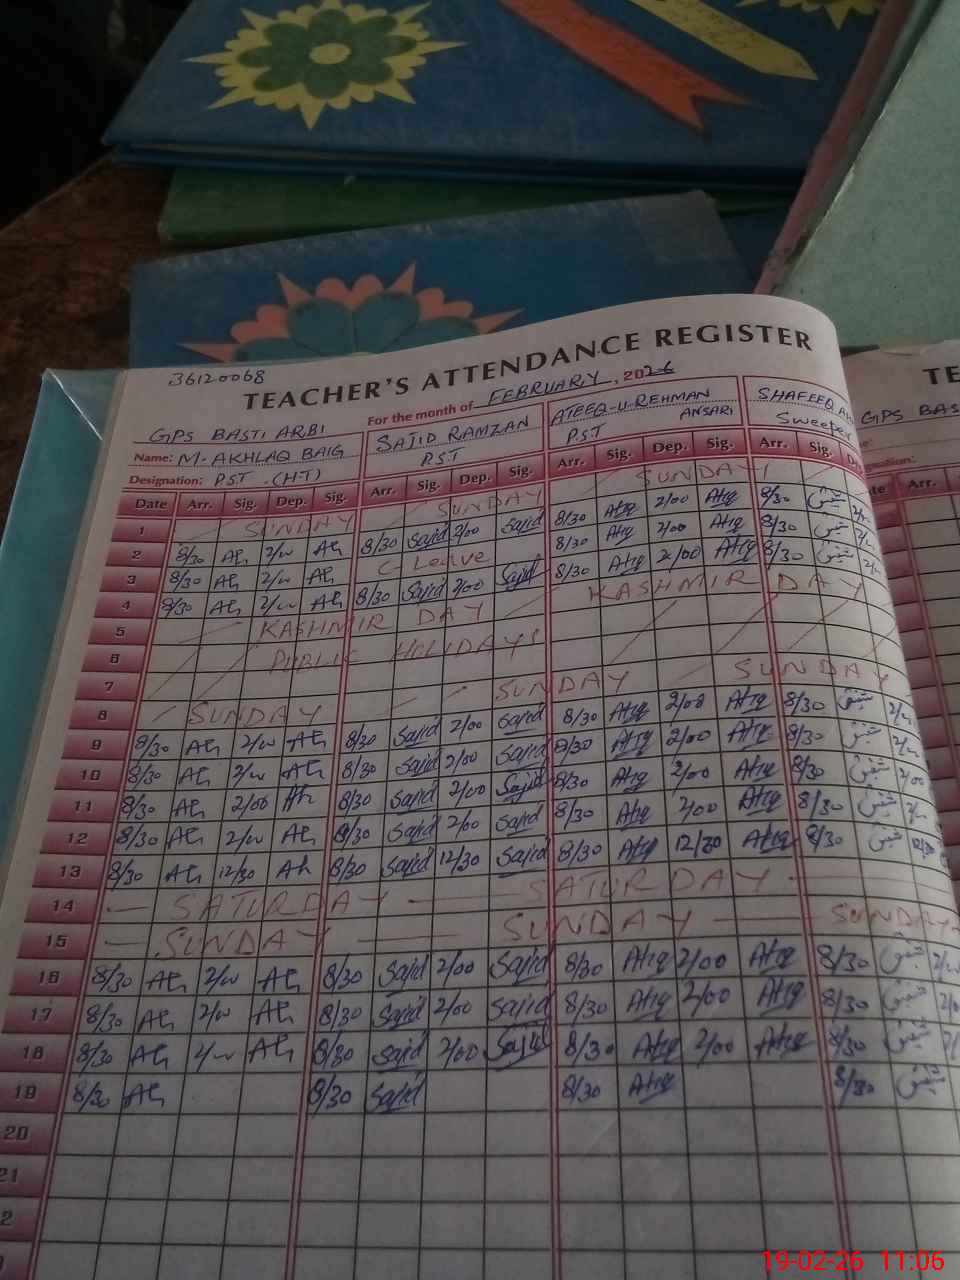 36120068
TEACHER'S ATTENDANCE REGISTER
For the month of FEBRUARY, 2026
GPS BASTI ARBI
Name: M-AKHLAQ BAIG
Designation: PST (H.T)
SAJID RAMZAN
PST
ATEEQ-U-REHMAN
ANSARI
PST
SHAFEEQ
Sweeper
GPS BAS
TE
Date Arr. Sig. Dep. Sig. Arr. Sig. Dep. Sig. Arr. Sig. Dep. Sig. Arr. Sig.
1 SUNDAY SUNDAY SUNDAY
2 8/30 Ah 2/00 Ah 8/30 Sajid 2/00 Sajid 8/30 Atiq 2/00 Atiq 8/30 شفیق
3 8/30 Ah 2/00 Ah C-Leave 8/30 Atiq 2/00 Atiq 8/30 شفیق
4 8/30 Ah 2/00 Ah 8/30 Sajid 2/00 Sajid 8/30 Atiq 2/00 Atiq 8/30 شفیق
5 KASHMIR DAY KASHMIR DAY
6 PUBLIC HOLIDAYS
7
8 SUNDAY SUNDAY SUNDAY
9 8/30 Ah 2/00 Ah 8/30 Sajid 2/00 Sajid 8/30 Atiq 2/00 Atiq 8/30 شفیق
10 8/30 Ah 2/00 Ah 8/30 Sajid 2/00 Sajid 8/30 Atiq 2/00 Atiq 8/30 شفیق
11 8/30 Ah 2/00 Ah 8/30 Sajid 2/00 Sajid 8/30 Atiq 2/00 Atiq 8/30 شفیق 2/00
12 8/30 Ah 2/00 Ah 8/30 Sajid 2/00 Sajid 8/30 Atiq 2/00 Atiq 8/30 شفیق
13 8/30 Ah 12/30 Ah 8/30 Sajid 12/30 Sajid 8/30 Atiq 12/30 Atiq 8/30 شفیق 12/30
14 SATURDAY SATURDAY
15 SUNDAY SUNDAY SUNDAY
16 8/30 Ah 2/00 Ah 8/30 Sajid 2/00 Sajid 8/30 Atiq 2/00 Atiq 8/30 شفیق
17 8/30 Ah 2/00 Ah 8/30 Sajid 2/00 Sajid 8/30 Atiq 2/00 Atiq 8/30 شفیق
18 8/30 Ah 2/00 Ah 8/30 Sajid 2/00 Sajid 8/30 Atiq 2/00 Atiq 8/30 شفیق
19 8/30 Ah 8/30 Sajid 8/30 Atiq 8/30 شفیق
20
21
2
19-02-26 11:06